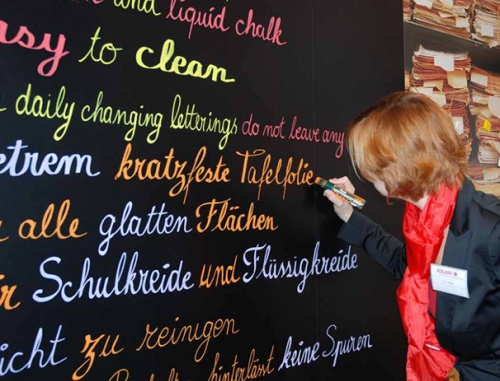 and liquid chalk
easy to clean
daily changing letterings do not leave any
kratzfeste Tafelfolie
alle glatten Flächen
Schulkreide und Flüssigkreide
zu reinigen
hinterlässt keine Spuren
ASLAN